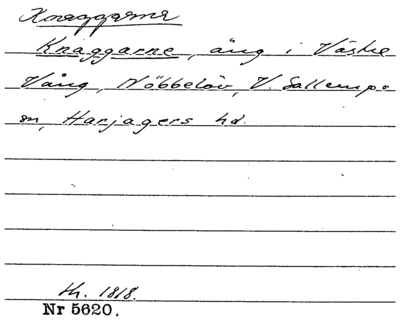 Knaggarne
Knaggarne, äng i Västra
Vång, Nöbbelöv, V. Sallerups
sn, Harjagers hd.
th. 1818.
Nr 5620.